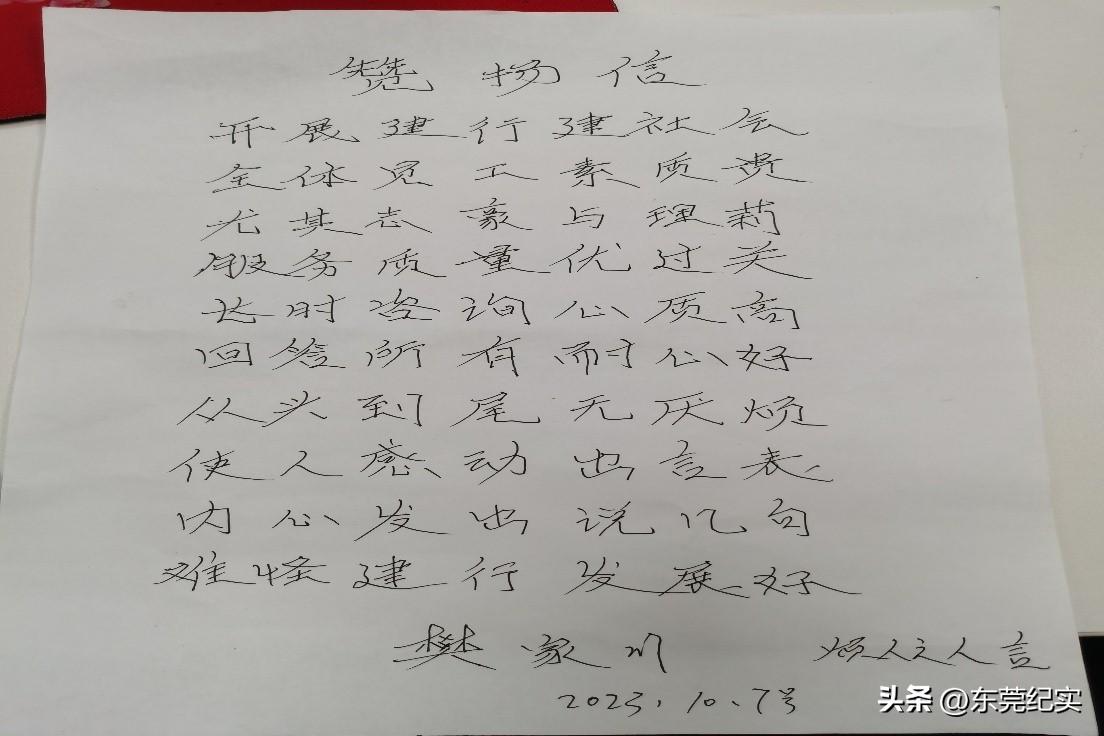 赞扬信
开展建行建社会
全体员工素质贵
尤其志豪与理莉
服务质量优过关
长时咨询心质高
回答所有耐心好
从头到尾无厌烦
使人感动出言表
内心发出说几句
难怪建行发展好
樊家川
烦人之人言
2023.10.7号
头条 @东莞纪实